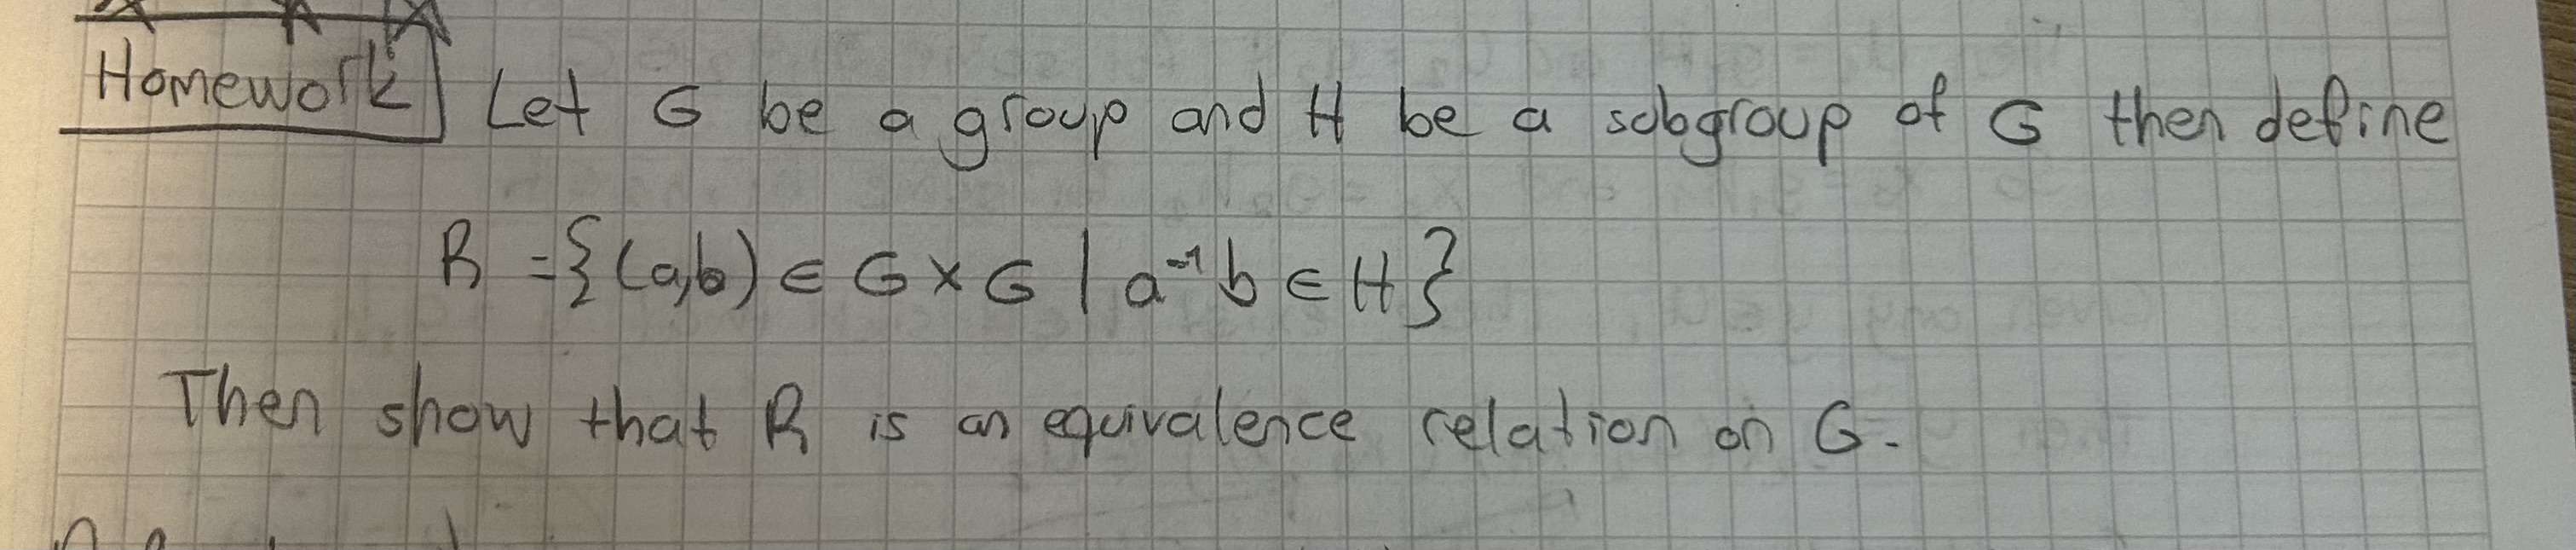 Homework Let G be a group and H be a subgroup of G then define
R = {(a,b) ∈ G × G | a⁻¹b ∈ H}
Then show that R is an equivalence relation on G.